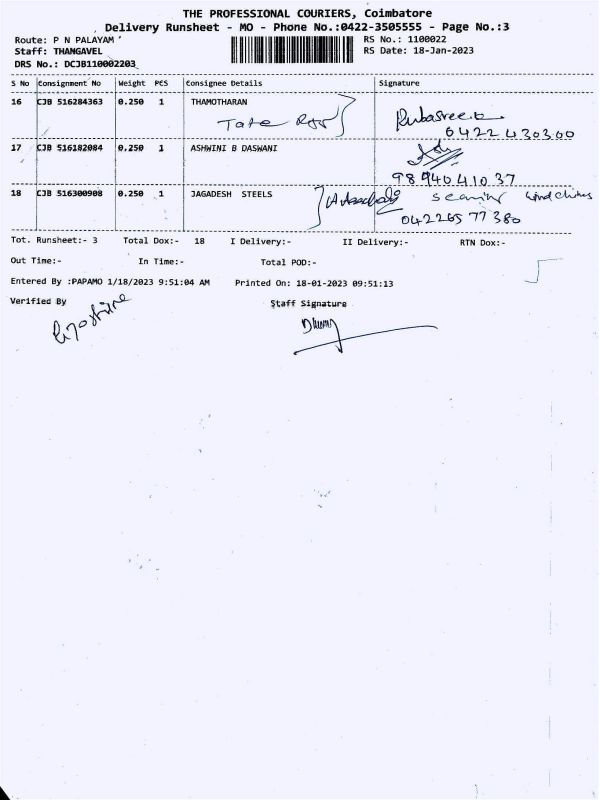 THE PROFESSIONAL COURIERS, Coimbatore
Delivery Runsheet - MO - Phone No.:0422-3505555 - Page No.:3
Route: P N PALAYAM RS No.: 1100022
Staff: THANGAVEL RS Date: 18-Jan-2023
DRS No.: DCJB110002203
S No Consignment No Weight PCS Consignee Details Signature
16 CJB 516284363 0.250 1 THAMOTHARAN
Rubasree.k
0422 430300
17 CJB 516182084 0.250 1 ASHWINI B DASWANI
98940 41037
18 CJB 516300908 0.250 1 JAGADESH STEELS
Tot. Runsheet:- 3 Total Dox:- 18 I Delivery:- II Delivery:- RTN Dox:-
Out Time:- In Time:- Total POD:-
Entered By :PAPAMO 1/18/2023 9:51:04 AM Printed On: 18-01-2023 09:51:13
Verified By Staff Signature